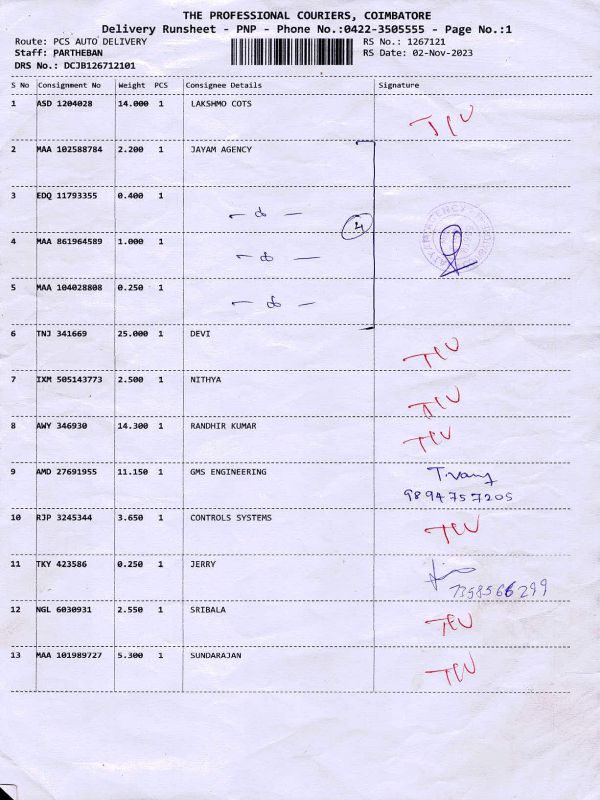 THE PROFESSIONAL COURIERS, COIMBATORE
Delivery Runsheet - PNP - Phone No.:0422-3505555 - Page No.:1
Route: PCS AUTO DELIVERY RS No.: 1267121
Staff: PARTHEBAN RS Date: 02-Nov-2023
DRS No.: DCJB126712101
S No Consignment No Weight PCS Consignee Details Signature
1 ASD 1204028 14.000 1 LAKSHMO COTS
2 MAA 102588784 2.200 1 JAYAM AGENCY
3 EDQ 11793355 0.400 1
- do -
4
4 MAA 861964589 1.000 1
- do -
5 MAA 104028808 0.250 1
- do -
6 TNJ 341669 25.000 1 DEVI
7 IXM 505143773 2.500 1 NITHYA
8 AWY 346930 14.300 1 RANDHIR KUMAR
9 AMD 27691955 11.150 1 GMS ENGINEERING
9894757205
10 RJP 3245344 3.650 1 CONTROLS SYSTEMS
11 TKY 423586 0.250 1 JERRY
7358566299
12 NGL 6030931 2.550 1 SRIBALA
13 MAA 101989727 5.300 1 SUNDARAJAN